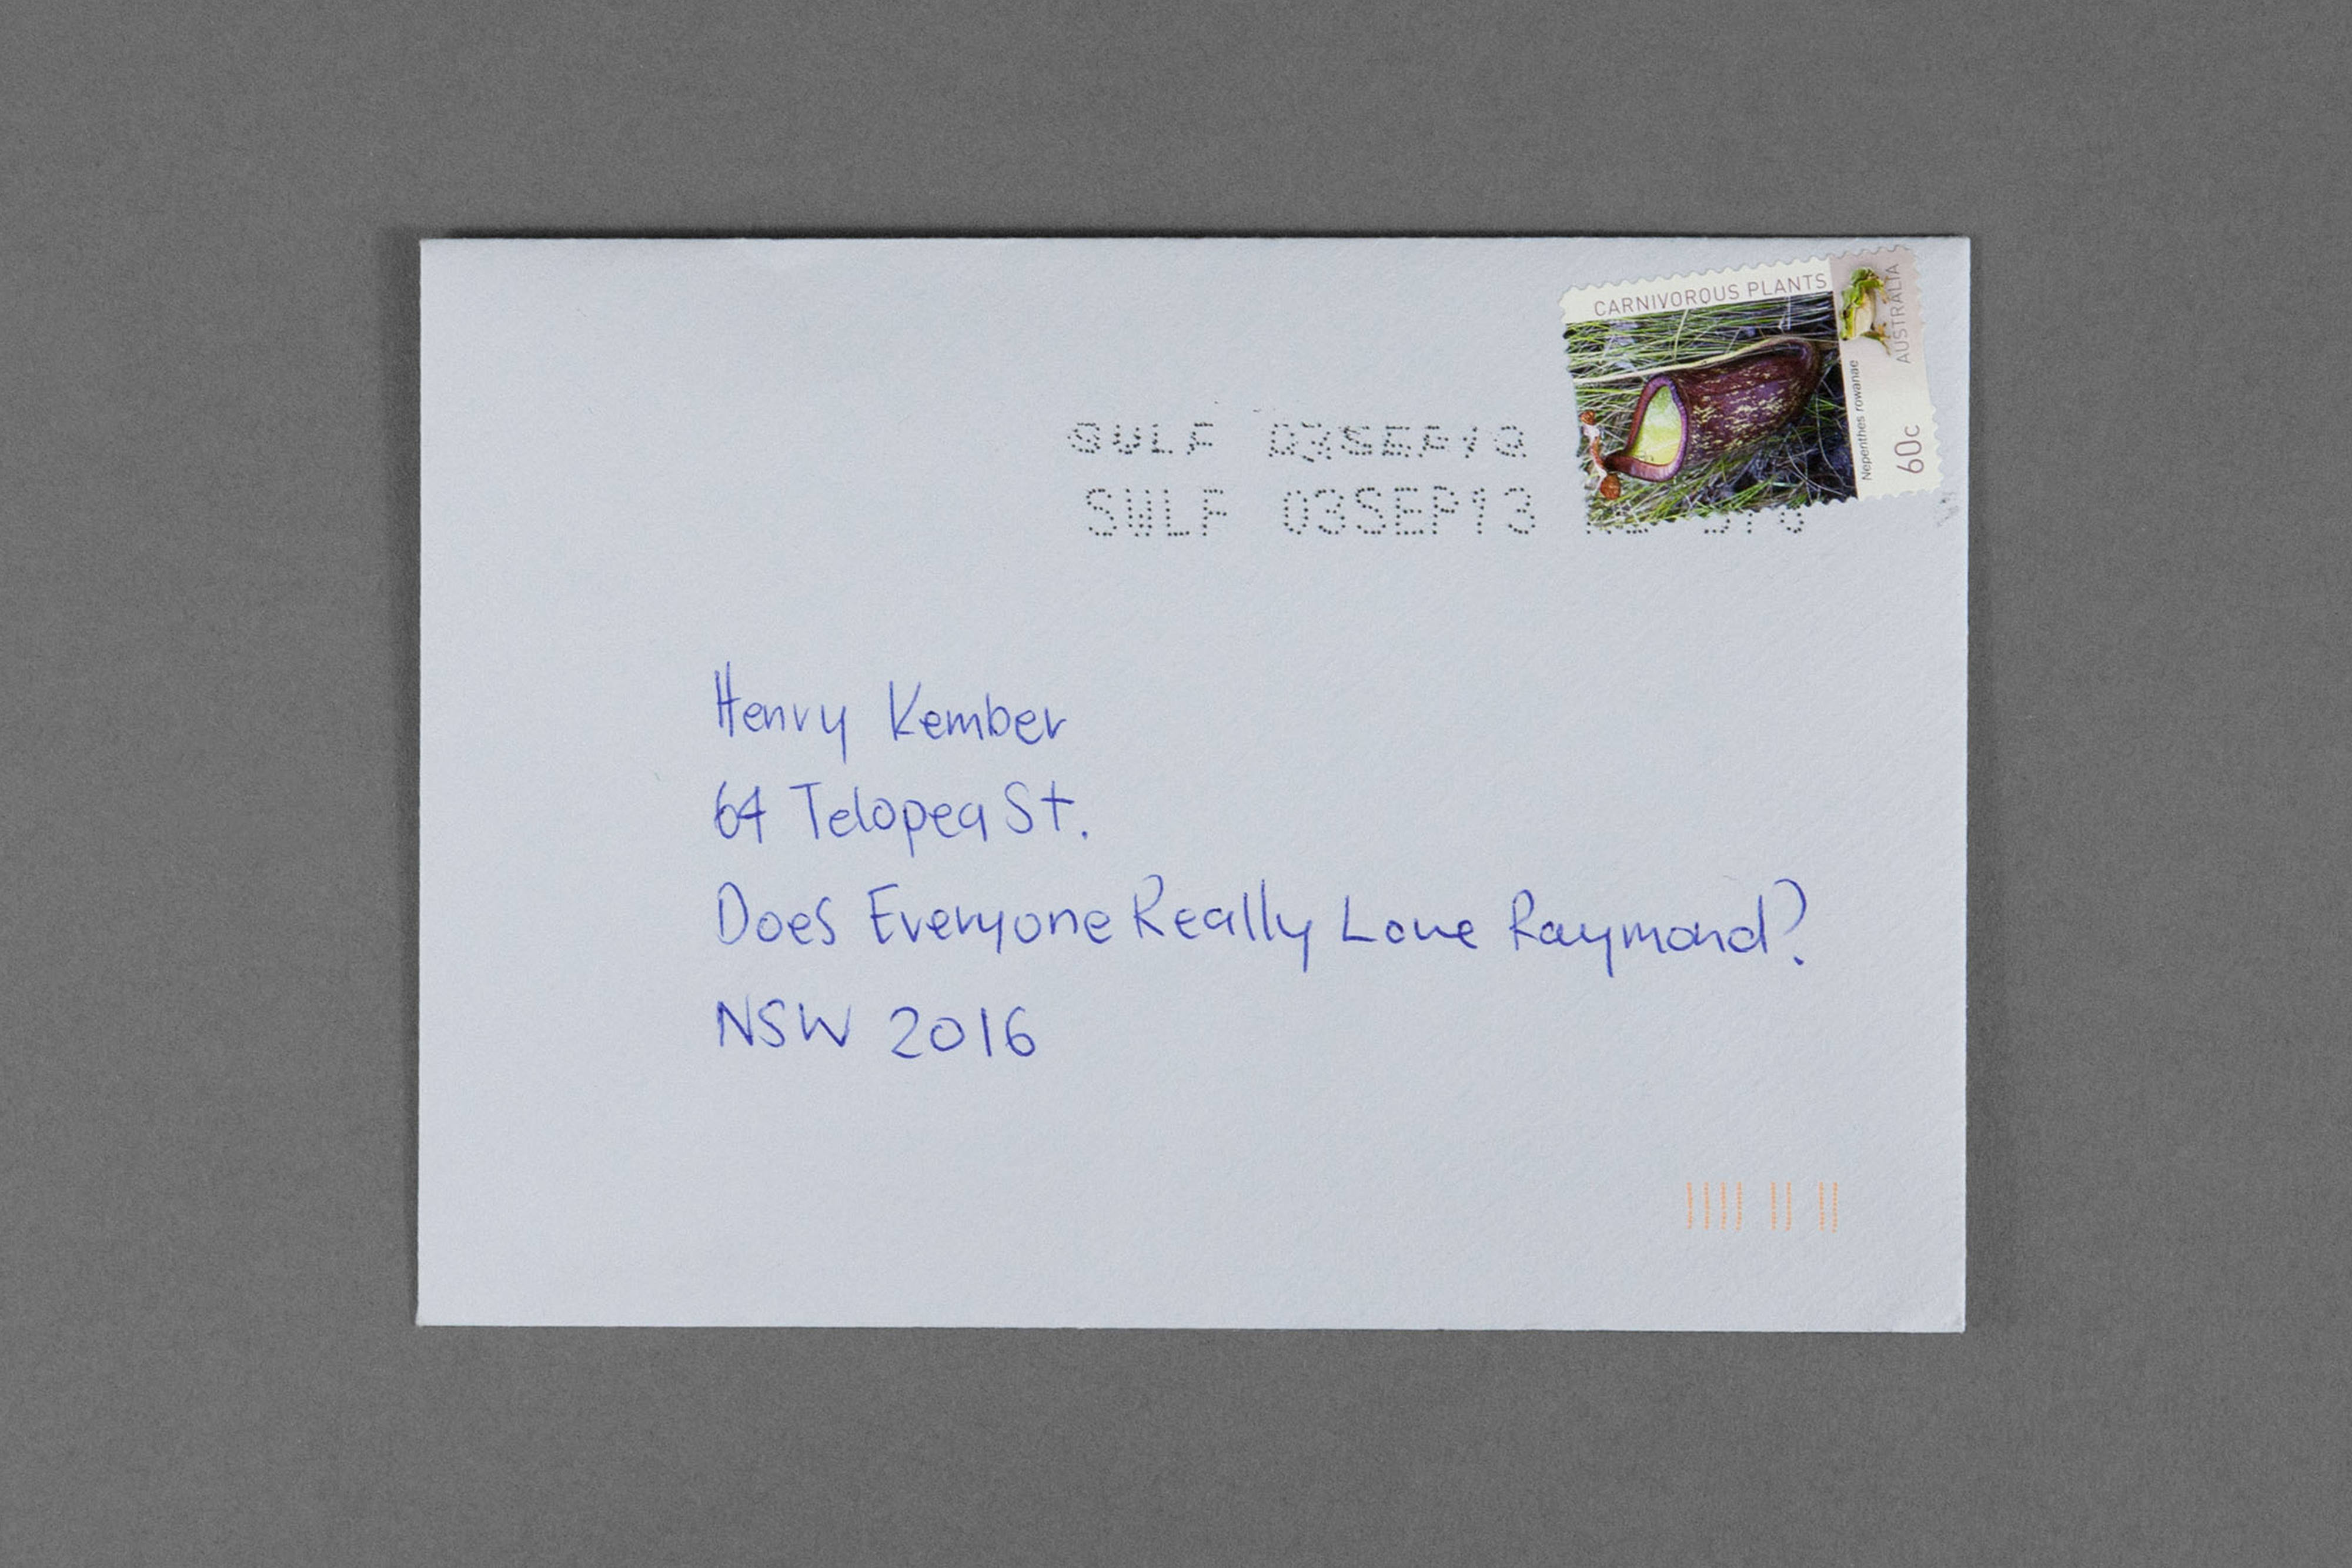 CARNIVOROUS PLANTS
AUSTRALIA
Nepenthes rowanae
60c
03SEP13
SWLF 03SEP13
Henry Kember
64 Telopea St.
Does Everyone Really Love Raymond?
NSW 2016